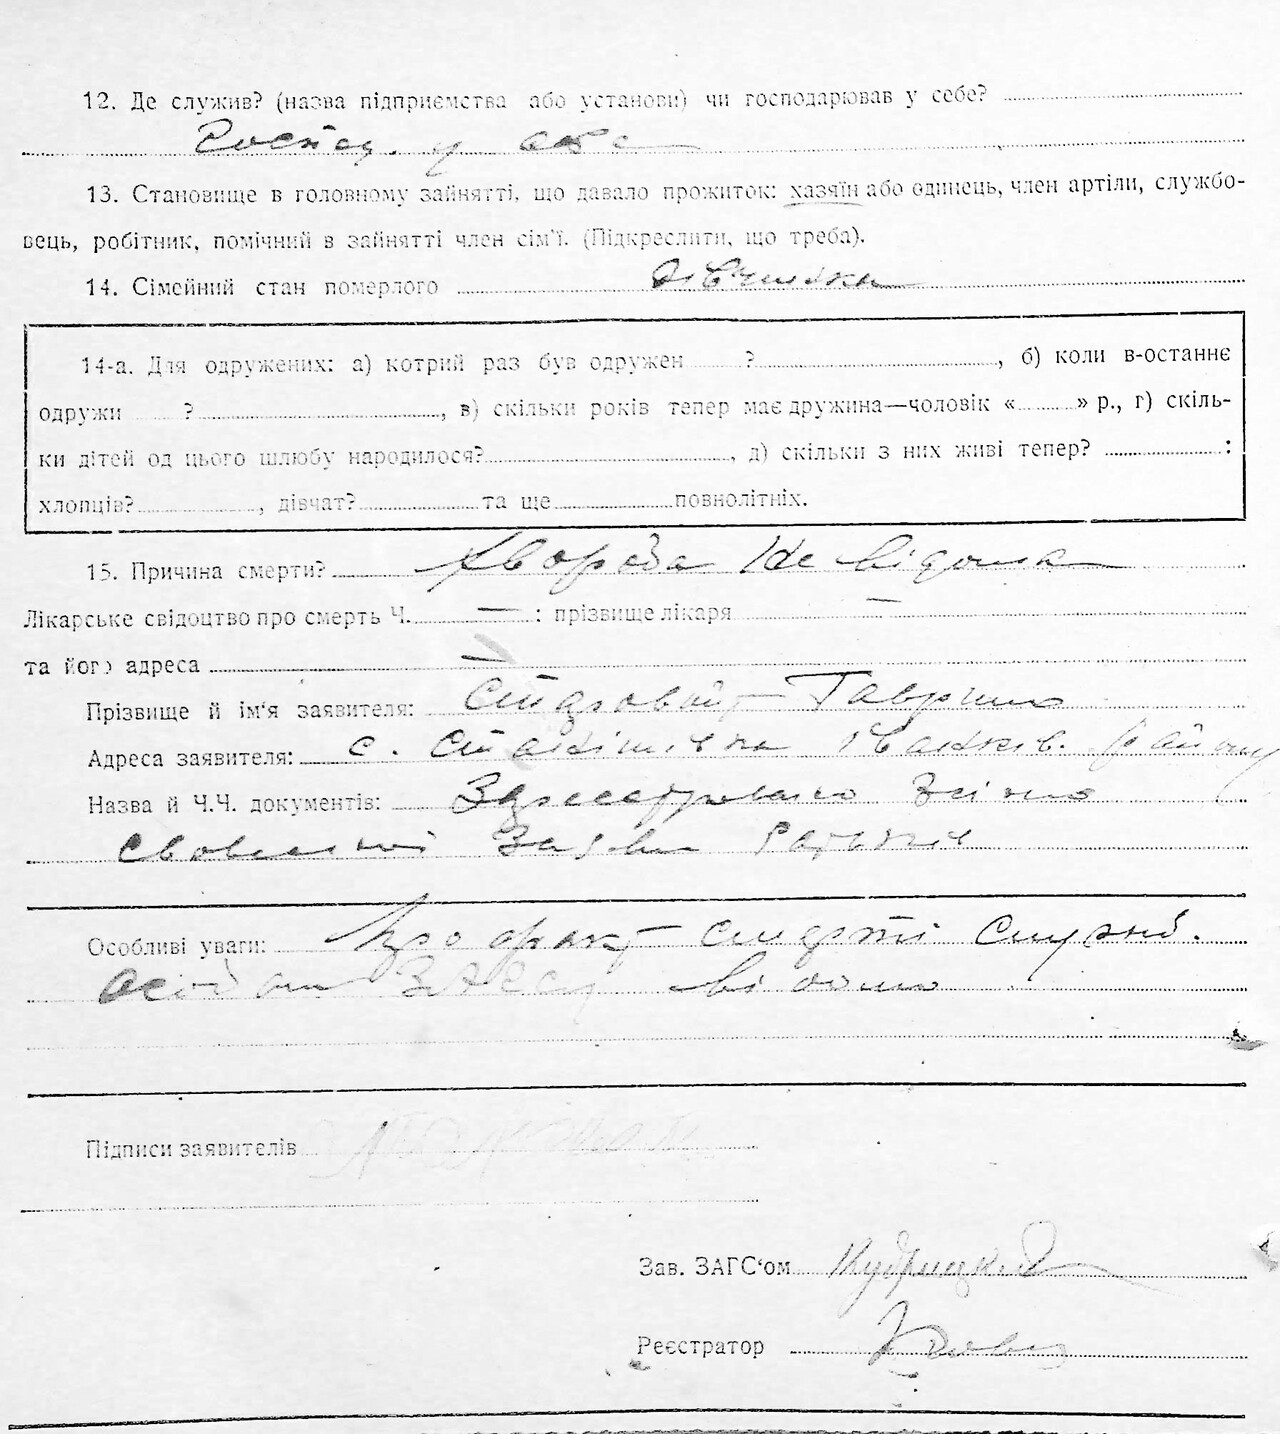 12. Де служив? (назва підприємства або установи) чи господарював у себе?
Господ. у себе
13. Становище в головному зайнятті, що давало прожиток: хазяїн або одинець, член артіли, службо-
вець, робітник, помічний в зайнятті член сім'ї. (Підкреслити, що треба).
14. Сімейний стан померлого
14-а. Для одружених: а) котрий раз був одружен ?, б) коли в-останнє
одружи ?, в) скільки років тепер має дружина—чоловік «» р., г) скіль-
ки дітей од цього шлюбу народилося?, д) скільки з них живі тепер? :
хлопців?, дівчат? та ще повнолітніх.
15. Причина смерти? Хвороба Не відома
Лікарське свідоцтво про смерть Ч. — : прізвище лікаря —
та його адреса —
Прізвище й ім'я заявителя: Гаврило
Адреса заявителя: с. району
Назва й Ч.Ч. документів: Зареєстровано Згідно
Заяви
Особливі уваги: Про факт смерти служб.
особам ЗАГСу відомо
Підписи заявителів
Зав. ЗАГС'ом Кудрицкий
Реєстратор